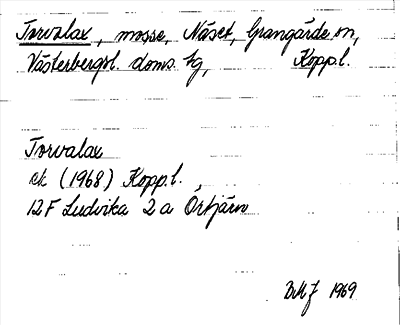 Torvalax, mosse, Näset, Grangärde sn,
Västerbergsl. doms. hg, Kopp.l.
Torvalax
ek (1968) Kopp.l.
12F Ludvika 2a Örtjärn
BMJ 1969